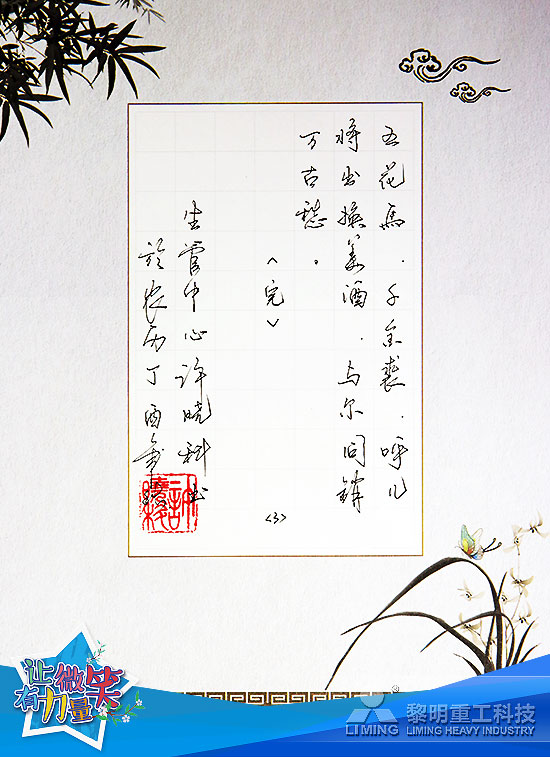 五花馬．千金裘．呼儿
将出換美酒．与尔同销
万古愁。
<完>
生管中心许晓科书
於农历丁酉年
<3>
让微笑
有力量
黎明重工科技
LIMING
LIMING HEAVY INDUSTRY